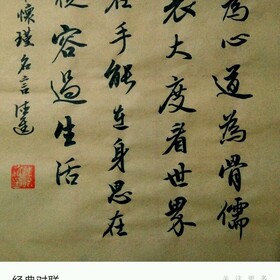 為心道為骨儒
表大度看世界
在手能在身思在
從容過生活
懷瑾名言
经典对联